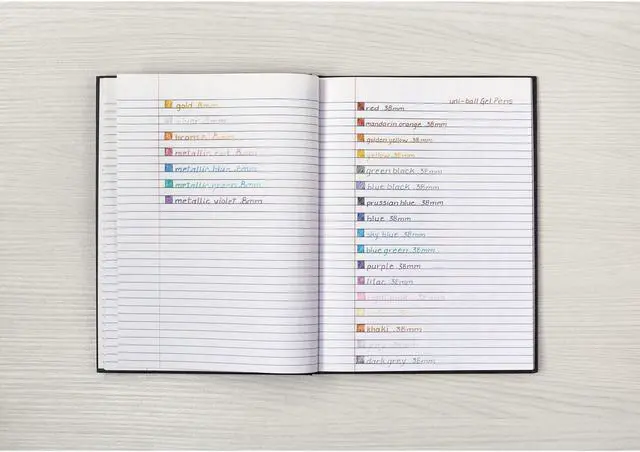 gold .8mm
silver .8mm
bronze .8mm
metallic red .8mm
metallic blue .8mm
metallic green .8mm
metallic violet .8mm
uni-ball Gel Pens
red .38mm
mandarin orange .38mm
golden yellow .38mm
yellow .38mm
green black .38mm
blue black .38mm
prussian blue .38mm
blue .38mm
sky blue .38mm
blue green .38mm
purple .38mm
lilac .38mm
.38mm
khaki .38mm
dark grey .38mm